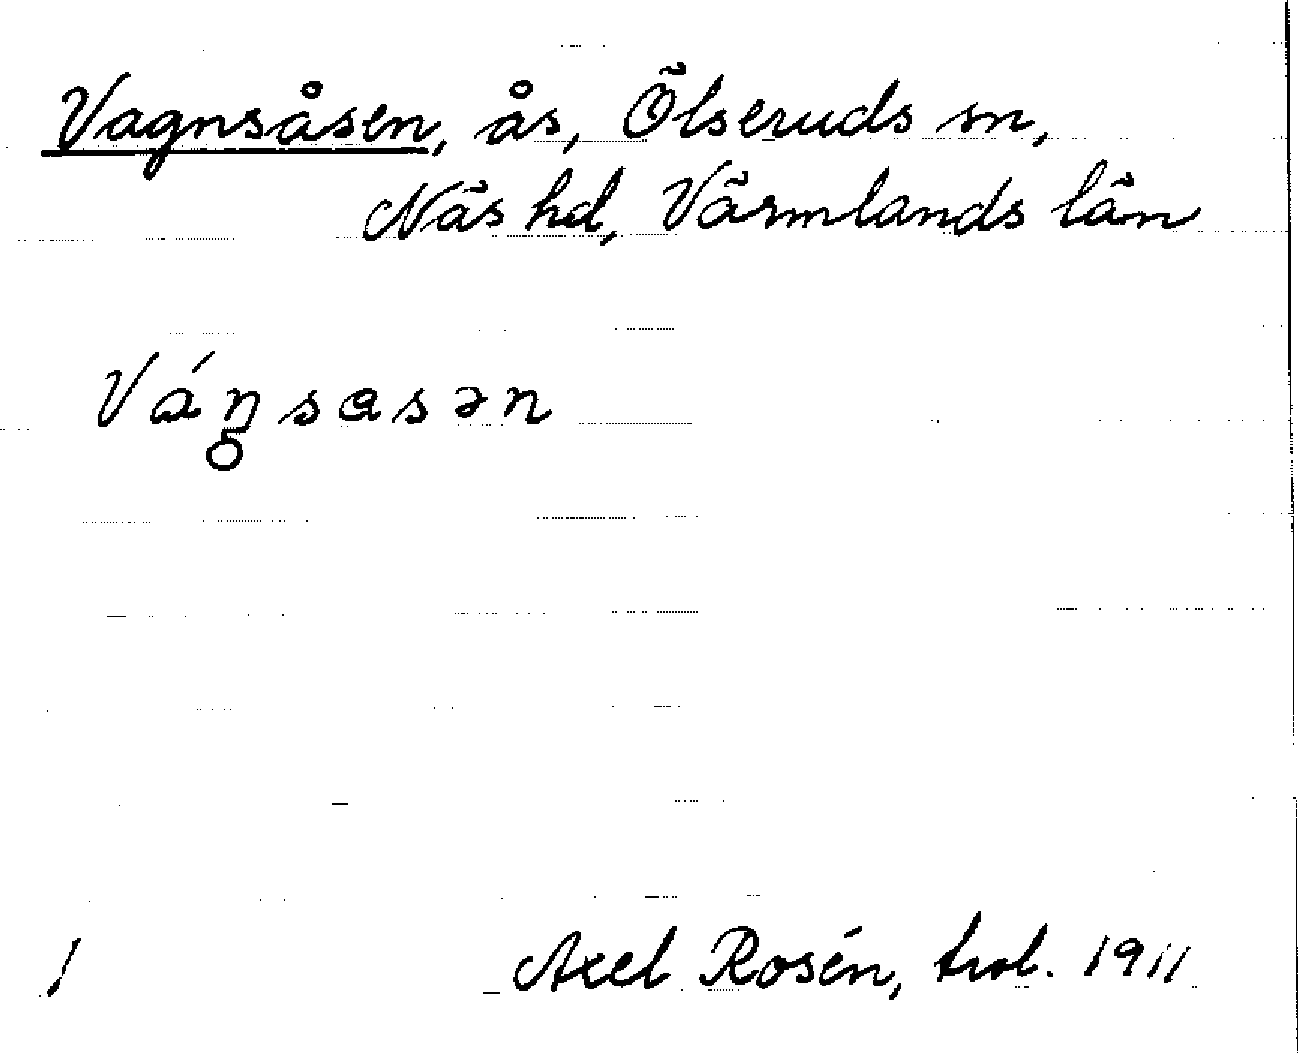 Vagnsåsen, ås, Ölseruds sn,
Näs hd, Värmlands län
Váŋ̥sɑsən
/ Axel Rosén, trol. 1911